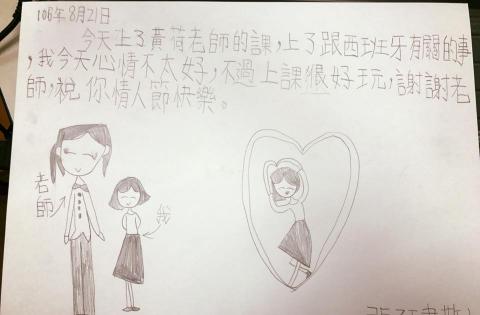 106年8月21日
今天上了黃荷老師的課,上了跟西班牙有關的事
,我今天心情不太好,不過上課很好玩,謝謝老
師,祝你情人節快樂。
老師
我